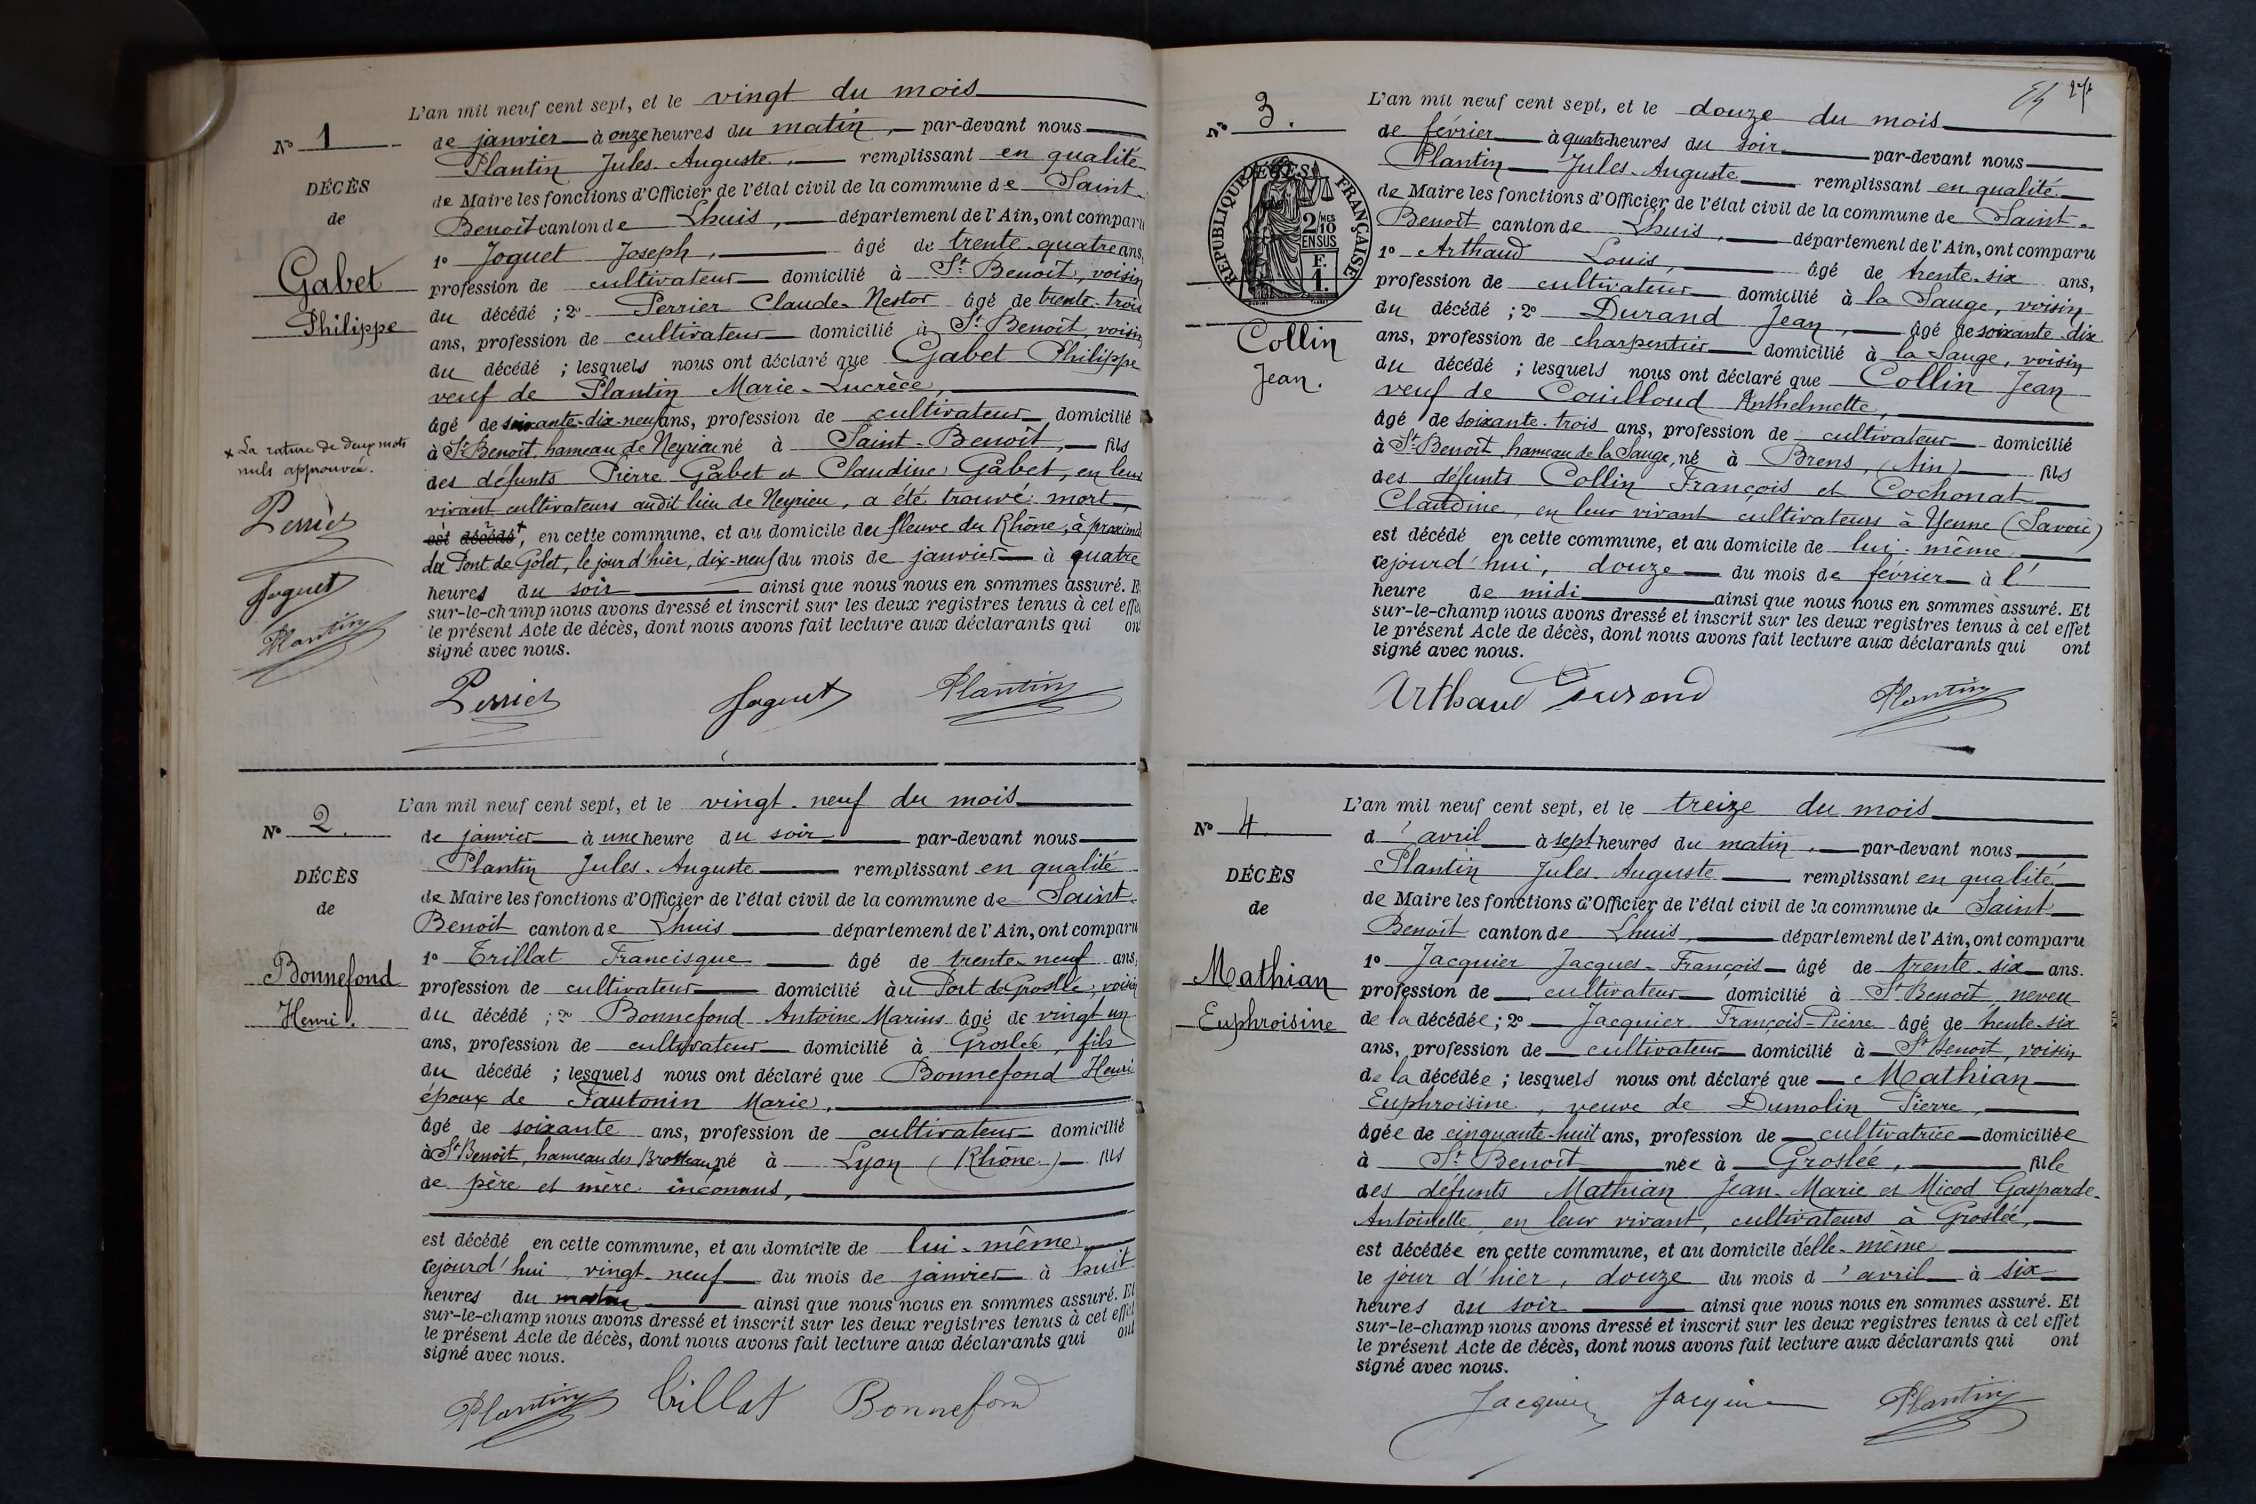 L'an mil neuf cent sept, et le vingt du mois
N° 1
de janvier à onze heures du matin, par-devant nous
Plantin Jules-Auguste, remplissant en qualité
DÉCÈS
de Maire les fonctions d'Officier de l'état civil de la commune de Saint-
de
Benoît canton de Lhuis, département de l'Ain, ont comparu
1° Joguet Joseph, âgé de trente-quatre ans,
Gabet
profession de cultivateur domicilié à St Benoît, voisin
Philippe
du décédé ; 2° Perrier Claude-Nestor âgé de trente-trois
ans, profession de cultivateur domicilié à St Benoît, voisin
du décédé ; lesquels nous ont déclaré que Gabet Philippe
veuf de Plantin Marie-Lucrèce,
âgé de soixante-dix-neuf ans, profession de cultivateur domicilié
x La rature de deux mots
nuls approuvée.
à St Benoît, hameau de Neyrieu né à Saint-Benoît, fils
des défunts Pierre Gabet et Claudine Gabet, en leur
vivant cultivateurs audit lieu de Neyrieu, a été trouvé mort,
Perrier
est décédé x, en cette commune, et au domicile du fleuve du Rhône, à proximité
du Pont de Golet, le jour d'hier, dix-neuf du mois de janvier à quatre
Joguet
heures du soir ainsi que nous nous en sommes assuré. Et
sur-le-champ nous avons dressé et inscrit sur les deux registres tenus à cet effet
Plantin
le présent Acte de décès, dont nous avons fait lecture aux déclarants qui ont
signé avec nous.
Perrier Joguet Plantin
L'an mil neuf cent sept, et le vingt-neuf du mois
N° 2.
de janvier à une heure du soir par-devant nous
Plantin Jules-Auguste remplissant en qualité
DÉCÈS
de Maire les fonctions d'Officier de l'état civil de la commune de Saint-
de
Benoît canton de Lhuis département de l'Ain, ont comparu
1° Trillat Francisque âgé de trente-neuf ans,
Bonnefond
profession de cultivateur domicilié au Port de Groslée, voisin
Henri.
du décédé ; 2° Bonnefond Antoine Marius âgé de vingt un
ans, profession de cultivateur domicilié à Groslée, fils
du décédé ; lesquels nous ont déclaré que Bonnefond Henri
époux de Fautonin Marie,
âgé de soixante ans, profession de cultivateur domicilié
à St Benoît, hameau des Brotteaux né à Lyon (Rhône) fils
de père et mère inconnus,
est décédé en cette commune, et au domicile de lui-même
cejourd'hui vingt-neuf du mois de janvier à huit
heures du matin ainsi que nous nous en sommes assuré. Et
sur-le-champ nous avons dressé et inscrit sur les deux registres tenus à cet effet
le présent Acte de décès, dont nous avons fait lecture aux déclarants qui ont
signé avec nous.
Plantin Trillat Bonnefond
L'an mil neuf cent sept, et le douze du mois
N° 3.
de février à quatre heures du soir par-devant nous
Plantin Jules-Auguste remplissant en qualité
de Maire les fonctions d'Officier de l'état civil de la commune de Saint-
RÉPUBLIQUE FRANÇAISE
2/10 MES
EN SUS
F.
1.
Benoît canton de Lhuis, département de l'Ain, ont comparu
1° Arthaud Louis, âgé de trente-six ans,
profession de cultivateur domicilié à la Sauge, voisin
Collin
Jean.
du décédé ; 2° Durand Jean, âgé de soixante-dix
ans, profession de charpentier domicilié à la Sauge, voisin
du décédé ; lesquels nous ont déclaré que Collin Jean
veuf de Couilloud Anthelmette,
âgé de soixante-trois ans, profession de cultivateur domicilié
à St Benoît, hameau de la Sauge, né à Brens, (Ain) fils
des défunts Collin François et Cochonat
Claudine, en leur vivant cultivateurs à Yenne (Savoie)
est décédé en cette commune, et au domicile de lui-même
cejourd'hui, douze du mois de février à l'
heure de midi ainsi que nous nous en sommes assuré. Et
sur-le-champ nous avons dressé et inscrit sur les deux registres tenus à cet effet
le présent Acte de décès, dont nous avons fait lecture aux déclarants qui ont
signé avec nous.
Arthaud Durand Plantin
L'an mil neuf cent sept, et le treize du mois
N° 4.
d'avril à sept heures du matin, par-devant nous
Plantin Jules-Auguste remplissant en qualité
DÉCÈS
de Maire les fonctions d'Officier de l'état civil de la commune de Saint
de
Benoît canton de Lhuis, département de l'Ain, ont comparu
1° Jacquier Jacques-François âgé de trente-six ans.
Mathian
profession de cultivateur domicilié à St Benoît, neveu
Euphroisine
de la décédée ; 2° Jacquier François-Pierre âgé de trente-six
ans, profession de cultivateur domicilié à St Benoît, voisin
de la décédée ; lesquels nous ont déclaré que Mathian
Euphroisine, veuve de Dumolin Pierre,
âgée de cinquante-huit ans, profession de cultivatrice domiciliée
à St Benoît née à Groslée, fille
des défunts Mathian Jean-Marie et Micod Gasparde-
Antoinette en leur vivant, cultivateurs à Groslée,
est décédée en cette commune, et au domicile d'elle-même
le jour d'hier, douze du mois d'avril à six
heures du soir ainsi que nous nous en sommes assuré. Et
sur-le-champ nous avons dressé et inscrit sur les deux registres tenus à cet effet
le présent Acte de décès, dont nous avons fait lecture aux déclarants qui ont
signé avec nous.
Jacquier Jacquier Plantin